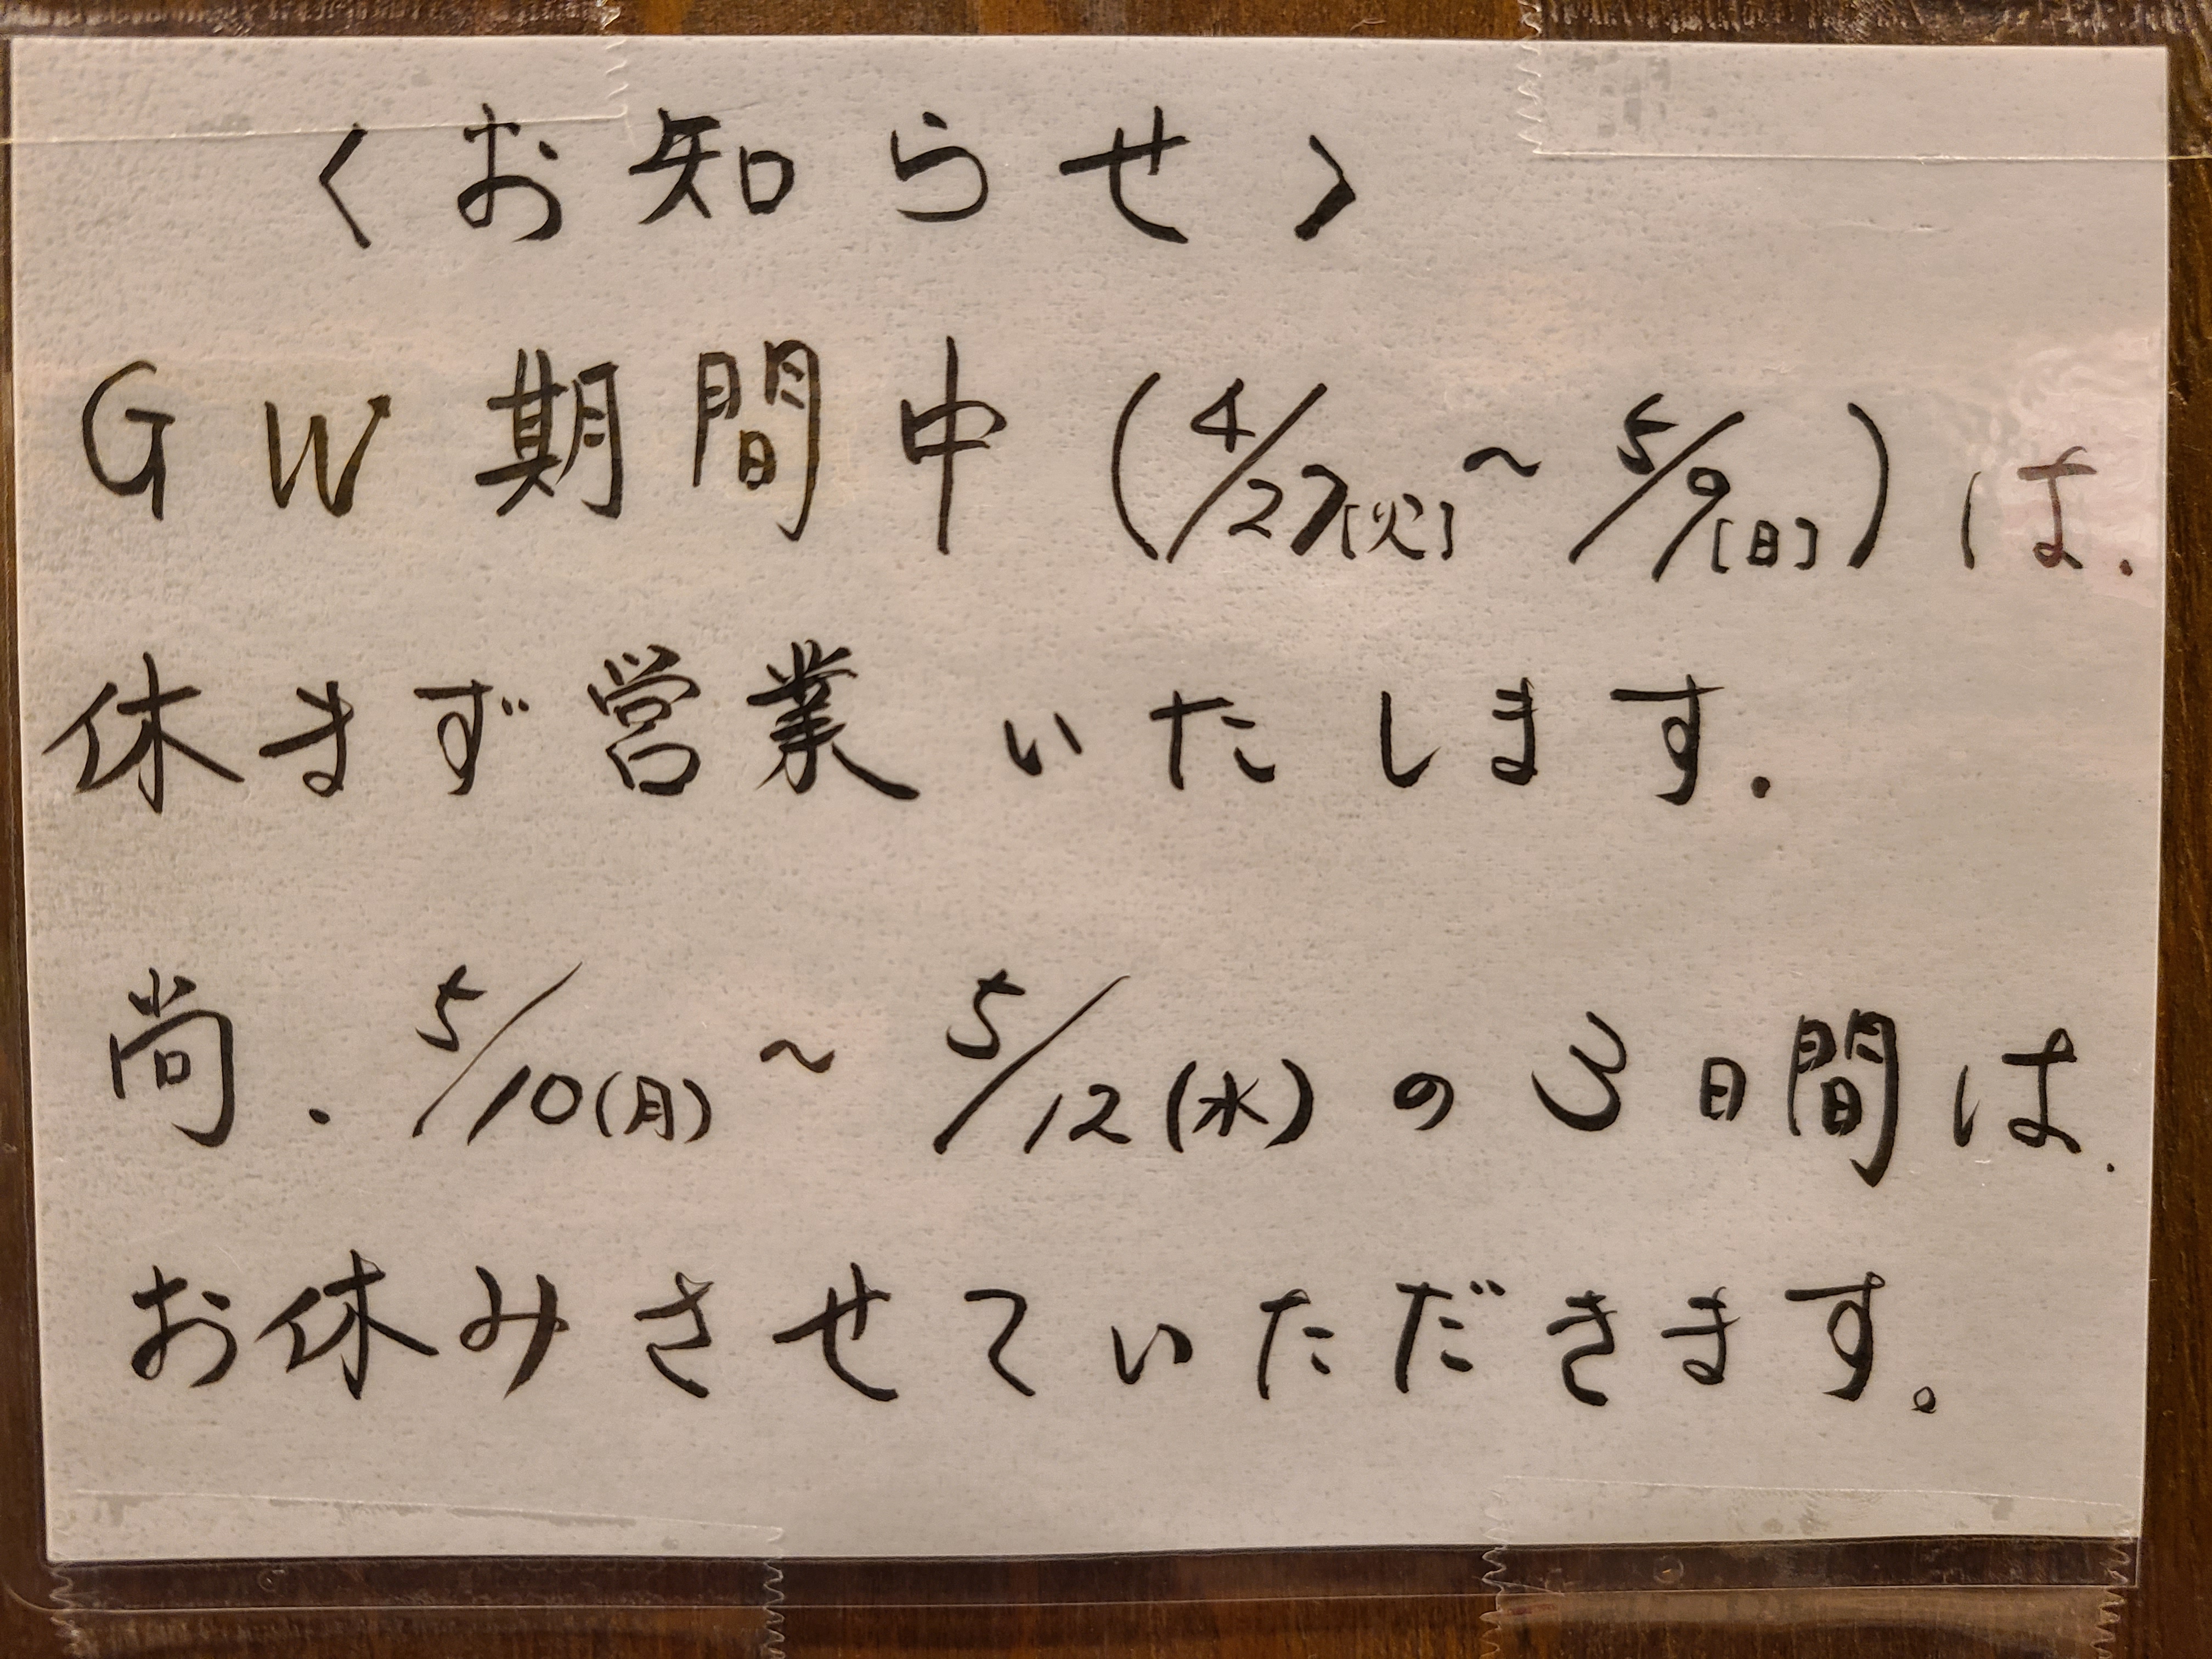 〈お知らせ〉
GW期間中(4/27[火]~5/9[日])は、
休まず営業いたします.
尚、5/10(月)~5/12(水)の3日間は、
お休みさせていただきます。